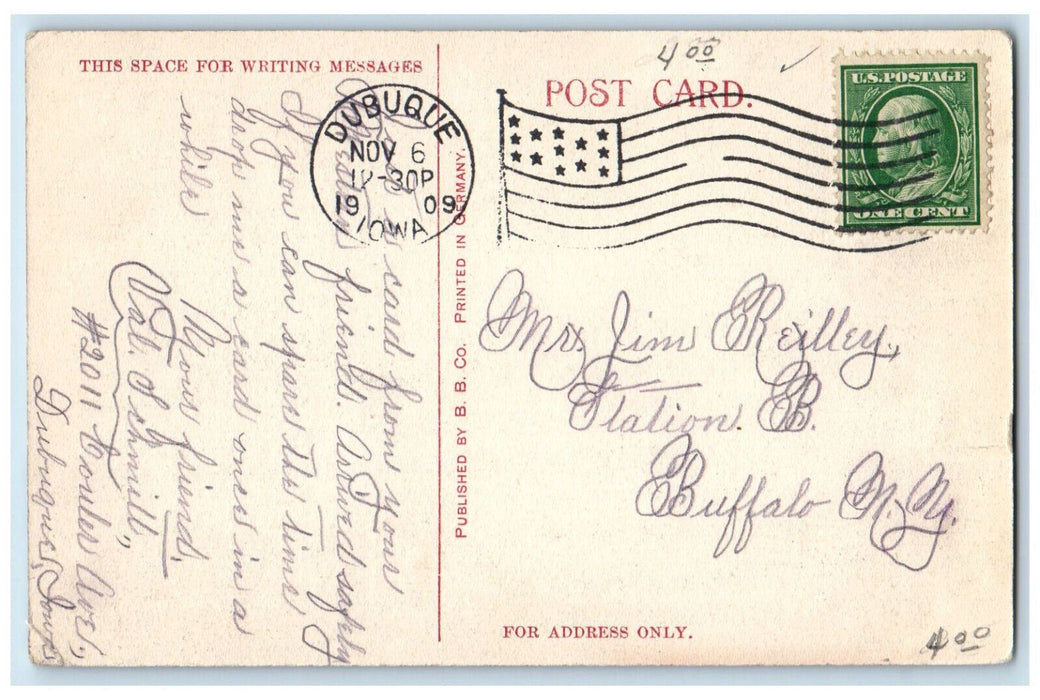 THIS SPACE FOR WRITING MESSAGES
a card from your
friends. Arived safely
If you can spare the time
drop me a card once in a
while
Your friend,
Val. Schmitt,
#2011 Couler Ave.,
Dubuque, Iowa
PUBLISHED BY B. B. Co. PRINTED IN GERMANY.
4 00
POST CARD.
DUBUQUE
NOV 6
12-30P
1909
IOWA
U.S. POSTAGE
ONE CENT
Mr. Jim Reilley,
Station B.
Buffalo N.Y.
FOR ADDRESS ONLY.
4 00